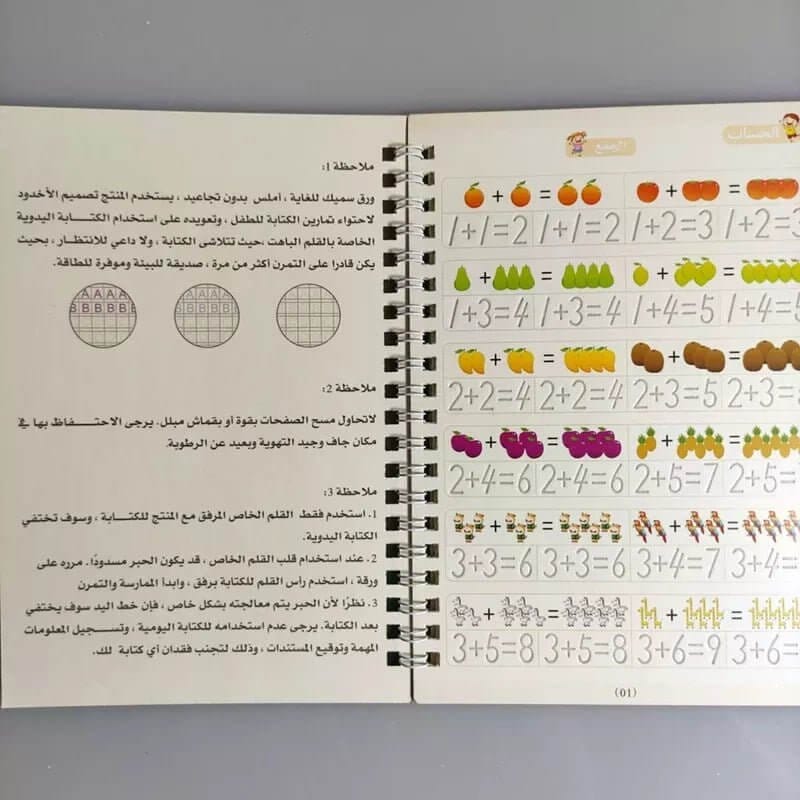 ملاحظة 1:
ورق سميك للغاية ، أملس بدون تجاعيد ، يستخدم المنتج تصميم الأخدود
لاحتواء تمارين الكتابة للطفل ، وتعويده على استخدام الكتـــابة اليدوية
الخاصة بالقلم الباهت ،حيث تتلاشى الكتابة ، ولا داعي للانتظار ، بحيث
يكن قادرا على التمرن أكثر من مرة ، صديقة للبيئة وموفرة للطاقة.
A A A A
B B B B
A A A A
B B B B
ملاحظة 2:
لاتحاول مسح الصفحات بقوة أو بقماش مبلل. يرجى الاحتـــفاظ بها في
مكان جاف وجيد التهوية وبعيد عن الرطوبة.
ملاحظة 3:
1. استخدم فقط القلم الخاص المرفق مع المنتج للكتـــابة ، وسوف تختفي
الكتابة اليدوية.
2. عند استخدام قلب القلم الخاص ، قد يكون الحبر مسدودًا. مرره على
ورقة ، استخدم راس القلم للكتابة برفق ، وابدأ الممارسة والتمرن
3. نظرًا لأن الحبر يتم معالجته بشكل خاص ، فإن خط اليد سوف يختفي
بعد الكتابة. يرجى عدم استخدامه للكتابة اليومية ، وتسجيل المعلومات
المهمة وتوقيع المستندات ، وذلك لتجنب فقدان أي كتابة لك.
الحساب
الجمع
+ = + =
1+1=2 1+1=2 1+2=3 1+2=3
+ = + =
1+3=4 1+3=4 1+4=5 1+4=5
+ = + =
2+2=4 2+2=4 2+3=5 2+3=
+ = + =
2+4=6 2+4=6 2+5=7 2+5=
+ = + =
3+3=6 3+3=6 3+4=7 3+4=
+ = + =
3+5=8 3+5=8 3+6=9 3+6=
(01)